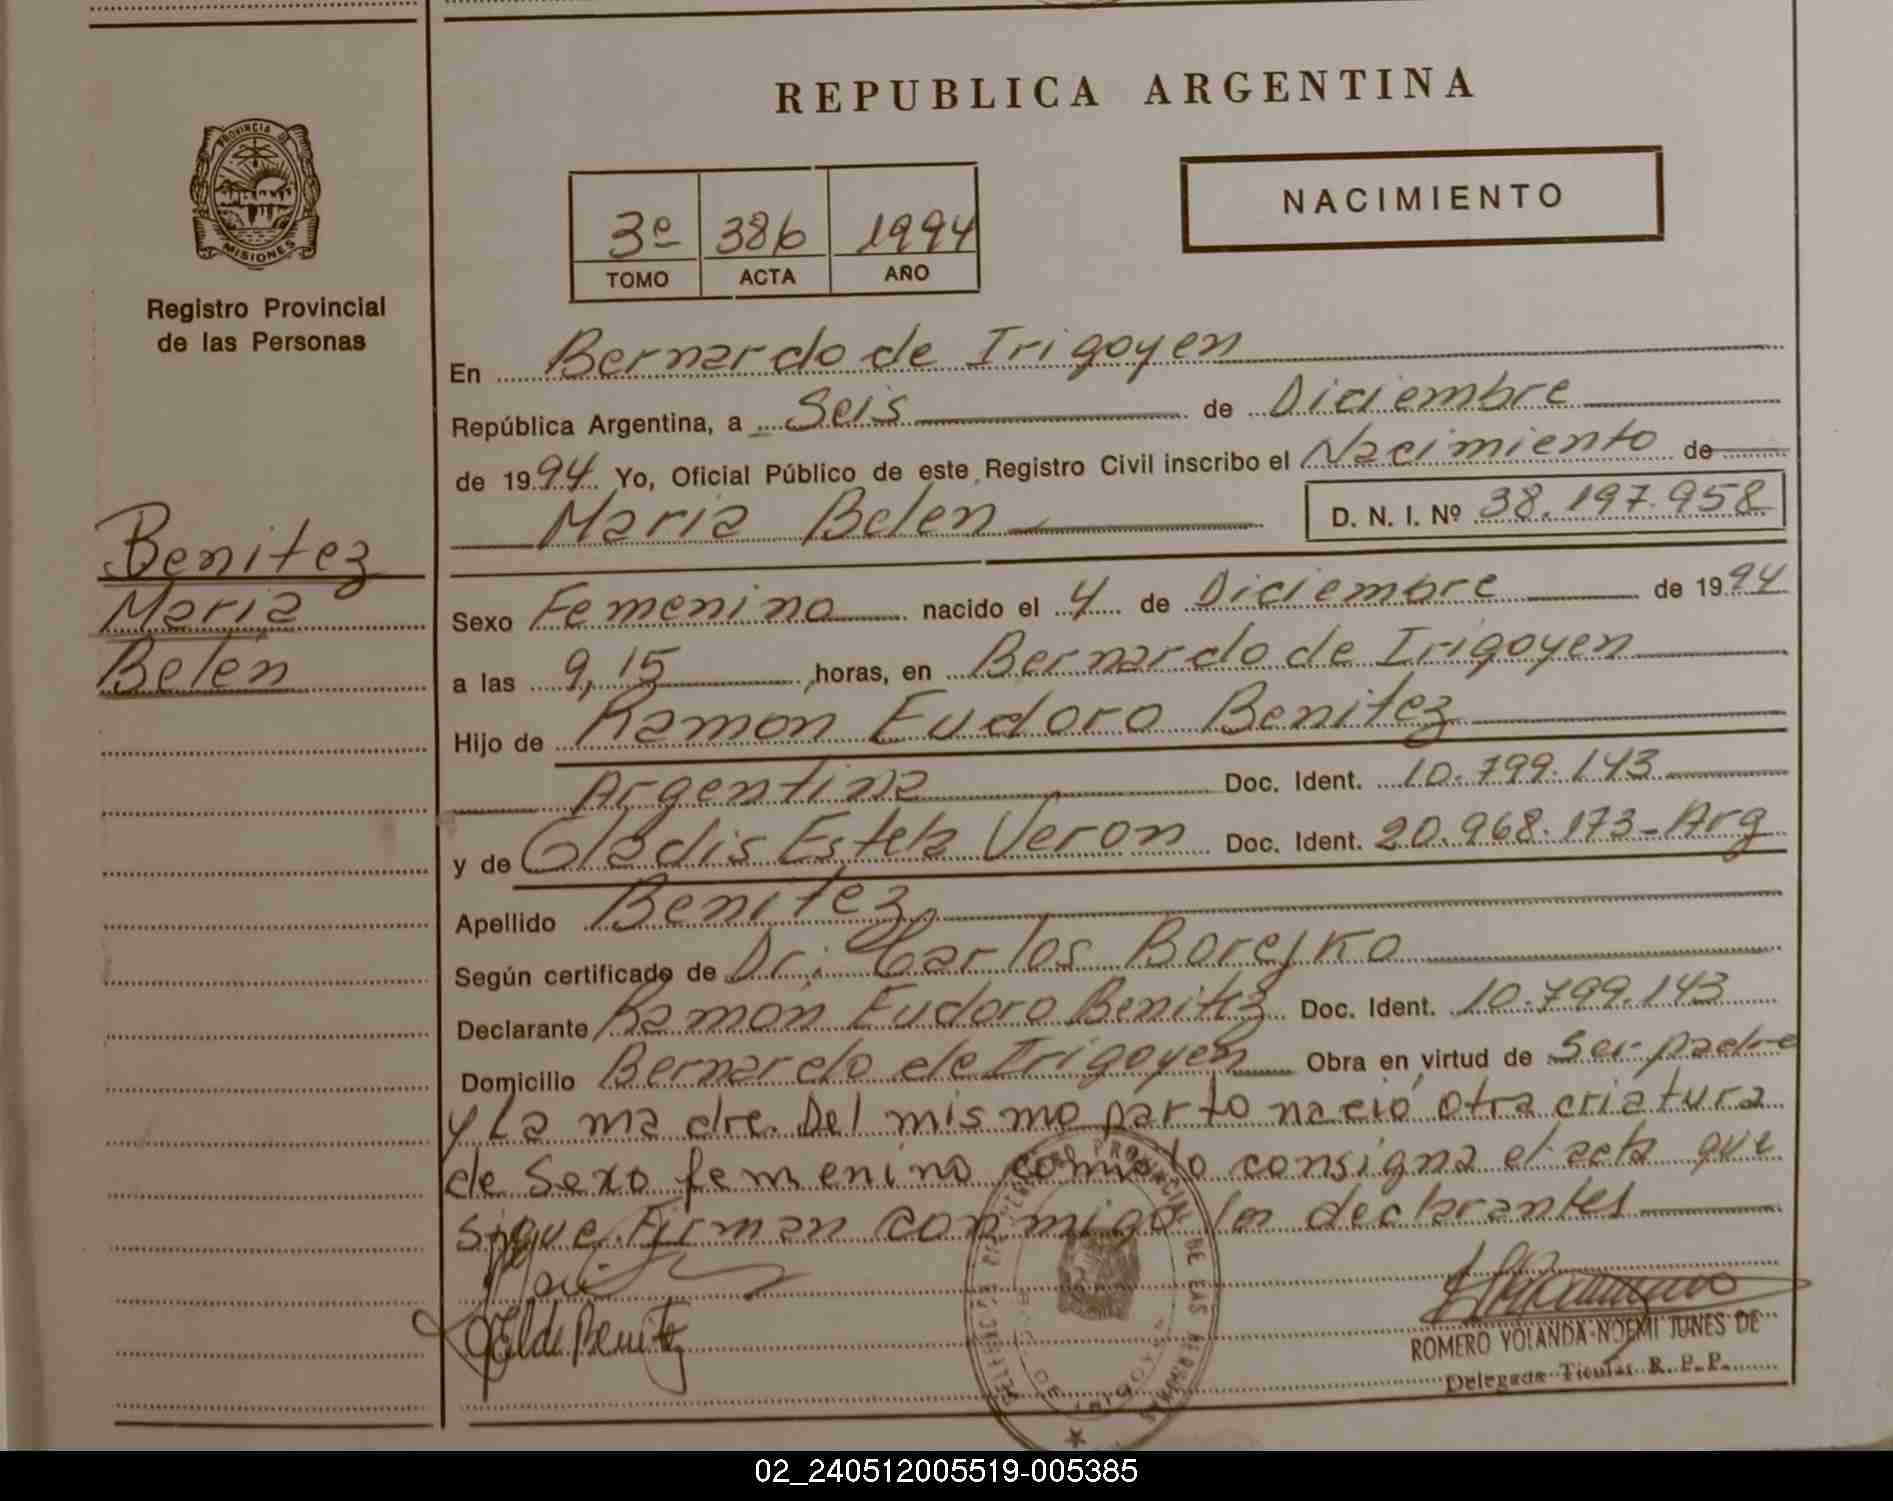 REPUBLICA ARGENTINA
PROVINCIA DE
MISIONES
Registro Provincial
de las Personas
NACIMIENTO
3º 386 1994
TOMO ACTA AÑO
Benitez
Maria
Belén
En Bernardo de Irigoyen
República Argentina, a Seis de Diciembre
de 1994 Yo, Oficial Público de este Registro Civil inscribo el Nacimiento de
Maria Belén D. N. I. Nº 38.197.958
Sexo Femenino nacido el 4 de Diciembre de 1994
a las 9,15 horas, en Bernardo de Irigoyen
Hijo de Ramon Eudoro Benitez
Argentina Doc. Ident. 10.799.143
y de Gladis Estela Veron Doc. Ident. 20.968.173-Arg
Apellido Benitez
Según certificado de Dr. Carlos Borejko
Declarante Ramón Eudoro Benitez Doc. Ident. 10.799.143
Domicilio Bernardo de Irigoyen Obra en virtud de Ser padre
y La madre. Del mismo parto nació otra criatura
de Sexo femenino como lo consigna el acta que
sigue. Firman conmigo los declarantes
de Benitez
ROMERO YOLANDA NOEMI JUNES DE
Delegada Titular R. P. P.
02_240512005519-005385